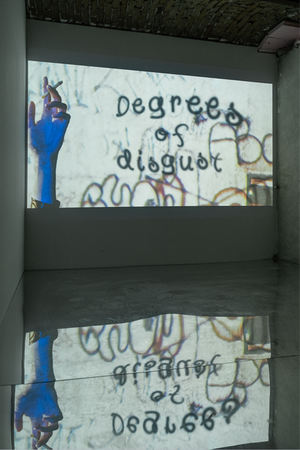 Degrees
of
disgust